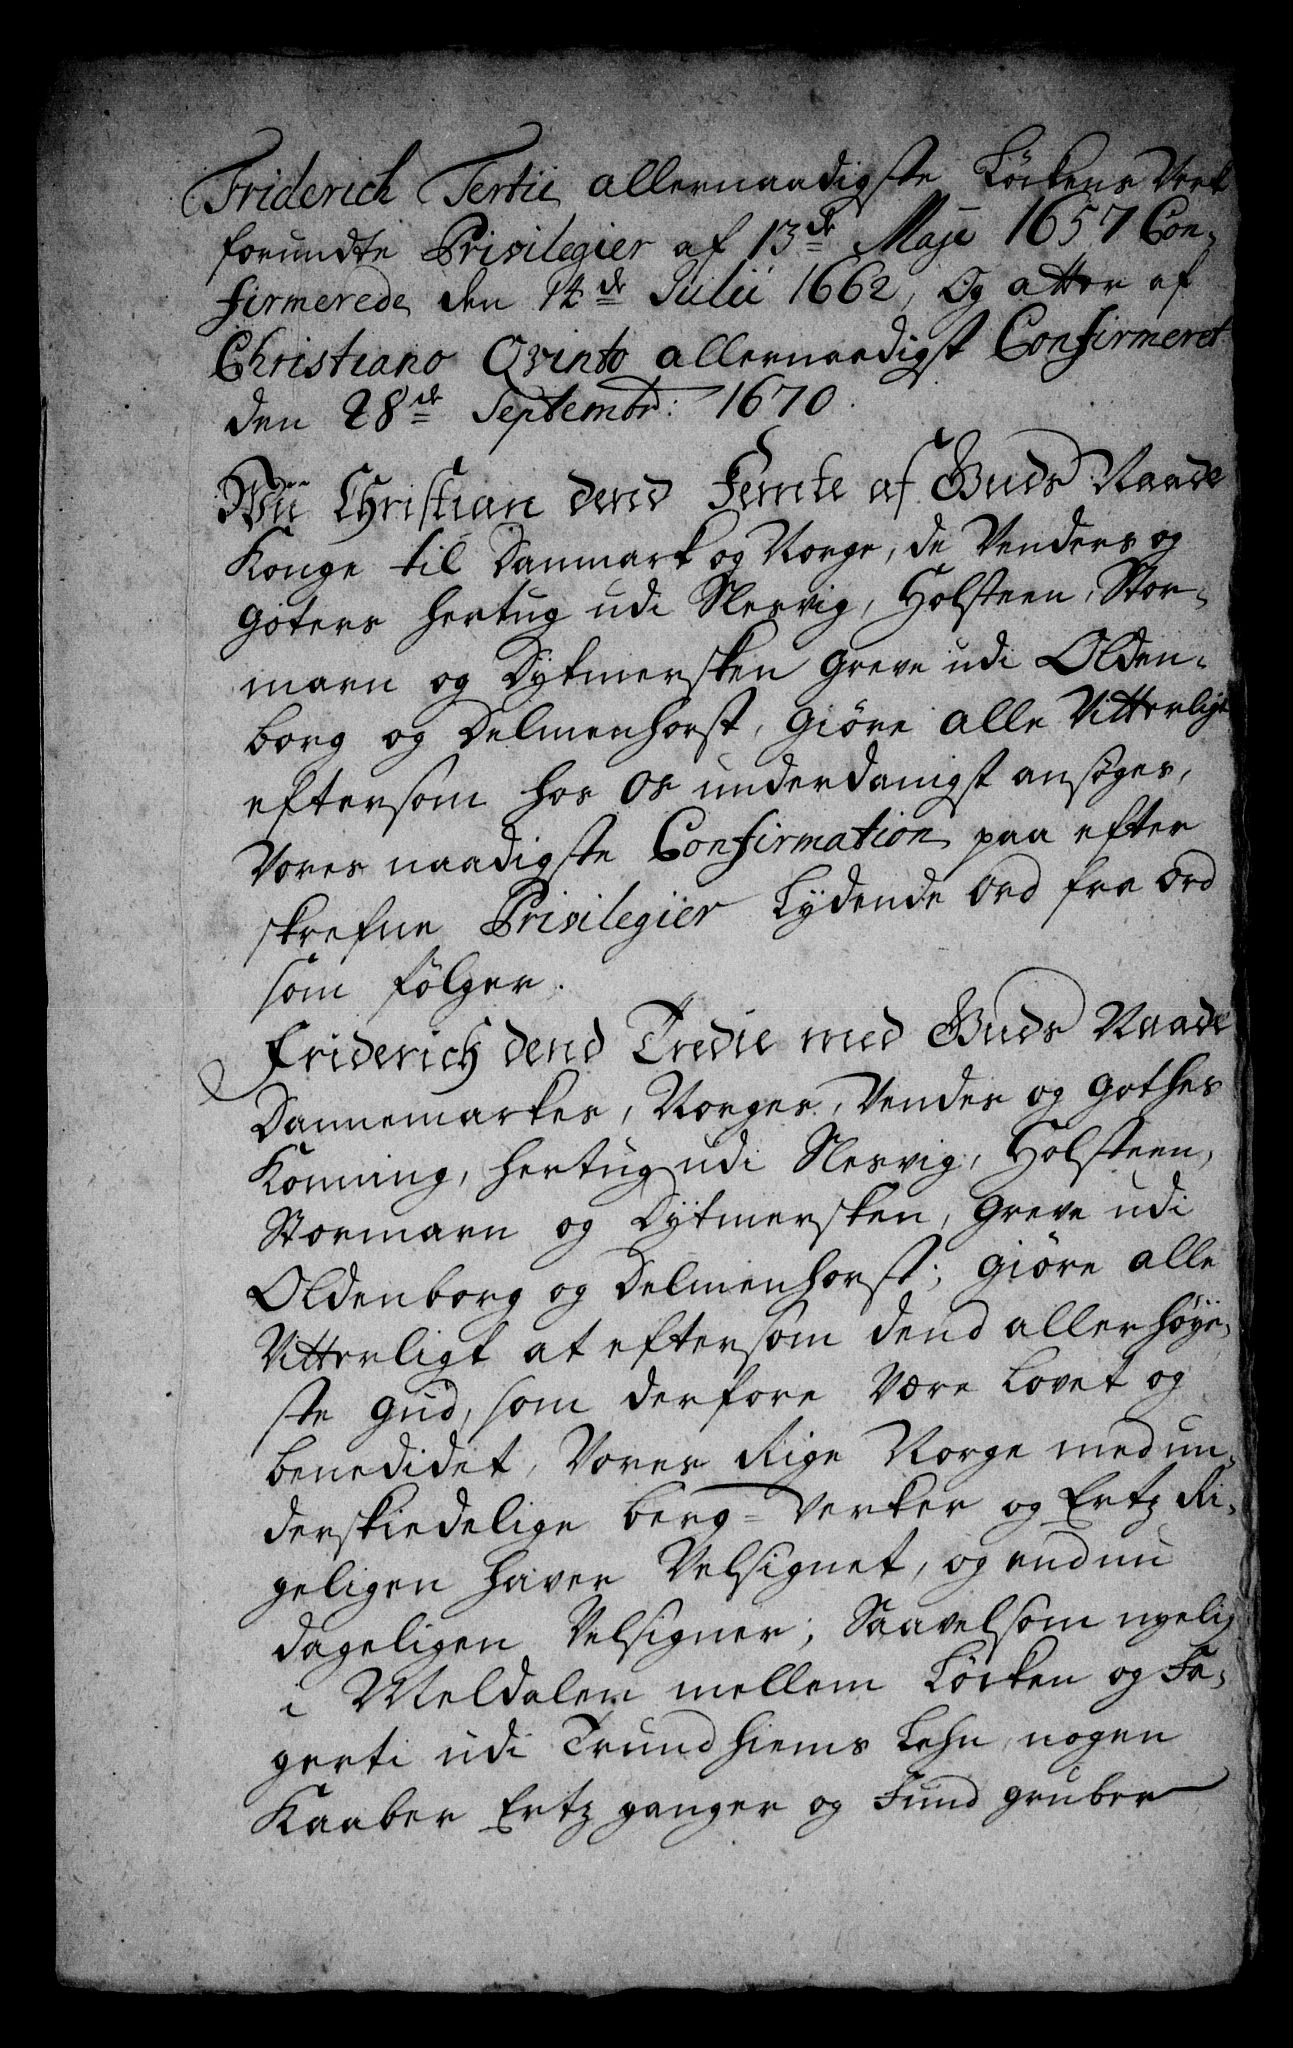 Friderich Tertii allernaadigste Löckens Verk
forundte Privilegier af 13de Maji 1657 Con-
firmerede den 14de Julii 1662, Og atter af
Christiano Qvinto allernaadigst Confirmeret
den 28de Septembr: 1670.
Wii Christian dend Femte af Guds Naade
Konge til Danmark og Norge, de Venders og
Goters Hertug udi Slesvig, Holsteen, Stor-
marn og Dytmersken Greve udi Olden-
borg og Delmenhorst, Giöre alle Vitterligt
eftersom hos Os underdanigst ansøges,
Vores naadigste Confirmation paa efter
skrefne Privilegier Lydende Ord fra Ord
som følger.
Friderich dend Tredie med Guds Naade
Dannemarkes, Norges, Vendes og Gothes
Konning, Hertug udi Slesvig, Holsteen,
Stormarn og Dytmersken, Greve udi
Oldenborg og Delmenhorst; Giöre alle
Vitterligt at eftersom dend allerhøye-
ste Gud, som derfore være Lovet og
benedidet, Vores Rige Norge med un-
derskiedelige berg-Verker og Ertz Ri-
geligen haver Velsignet, og endnu
dageligen Velsigner; Saavelsom nyelig
i Meldalen mellem Löcken og Fa-
gerli udi Trundhiems Lehn, nogen
Kaaber Ertz ganger og Fund gruber